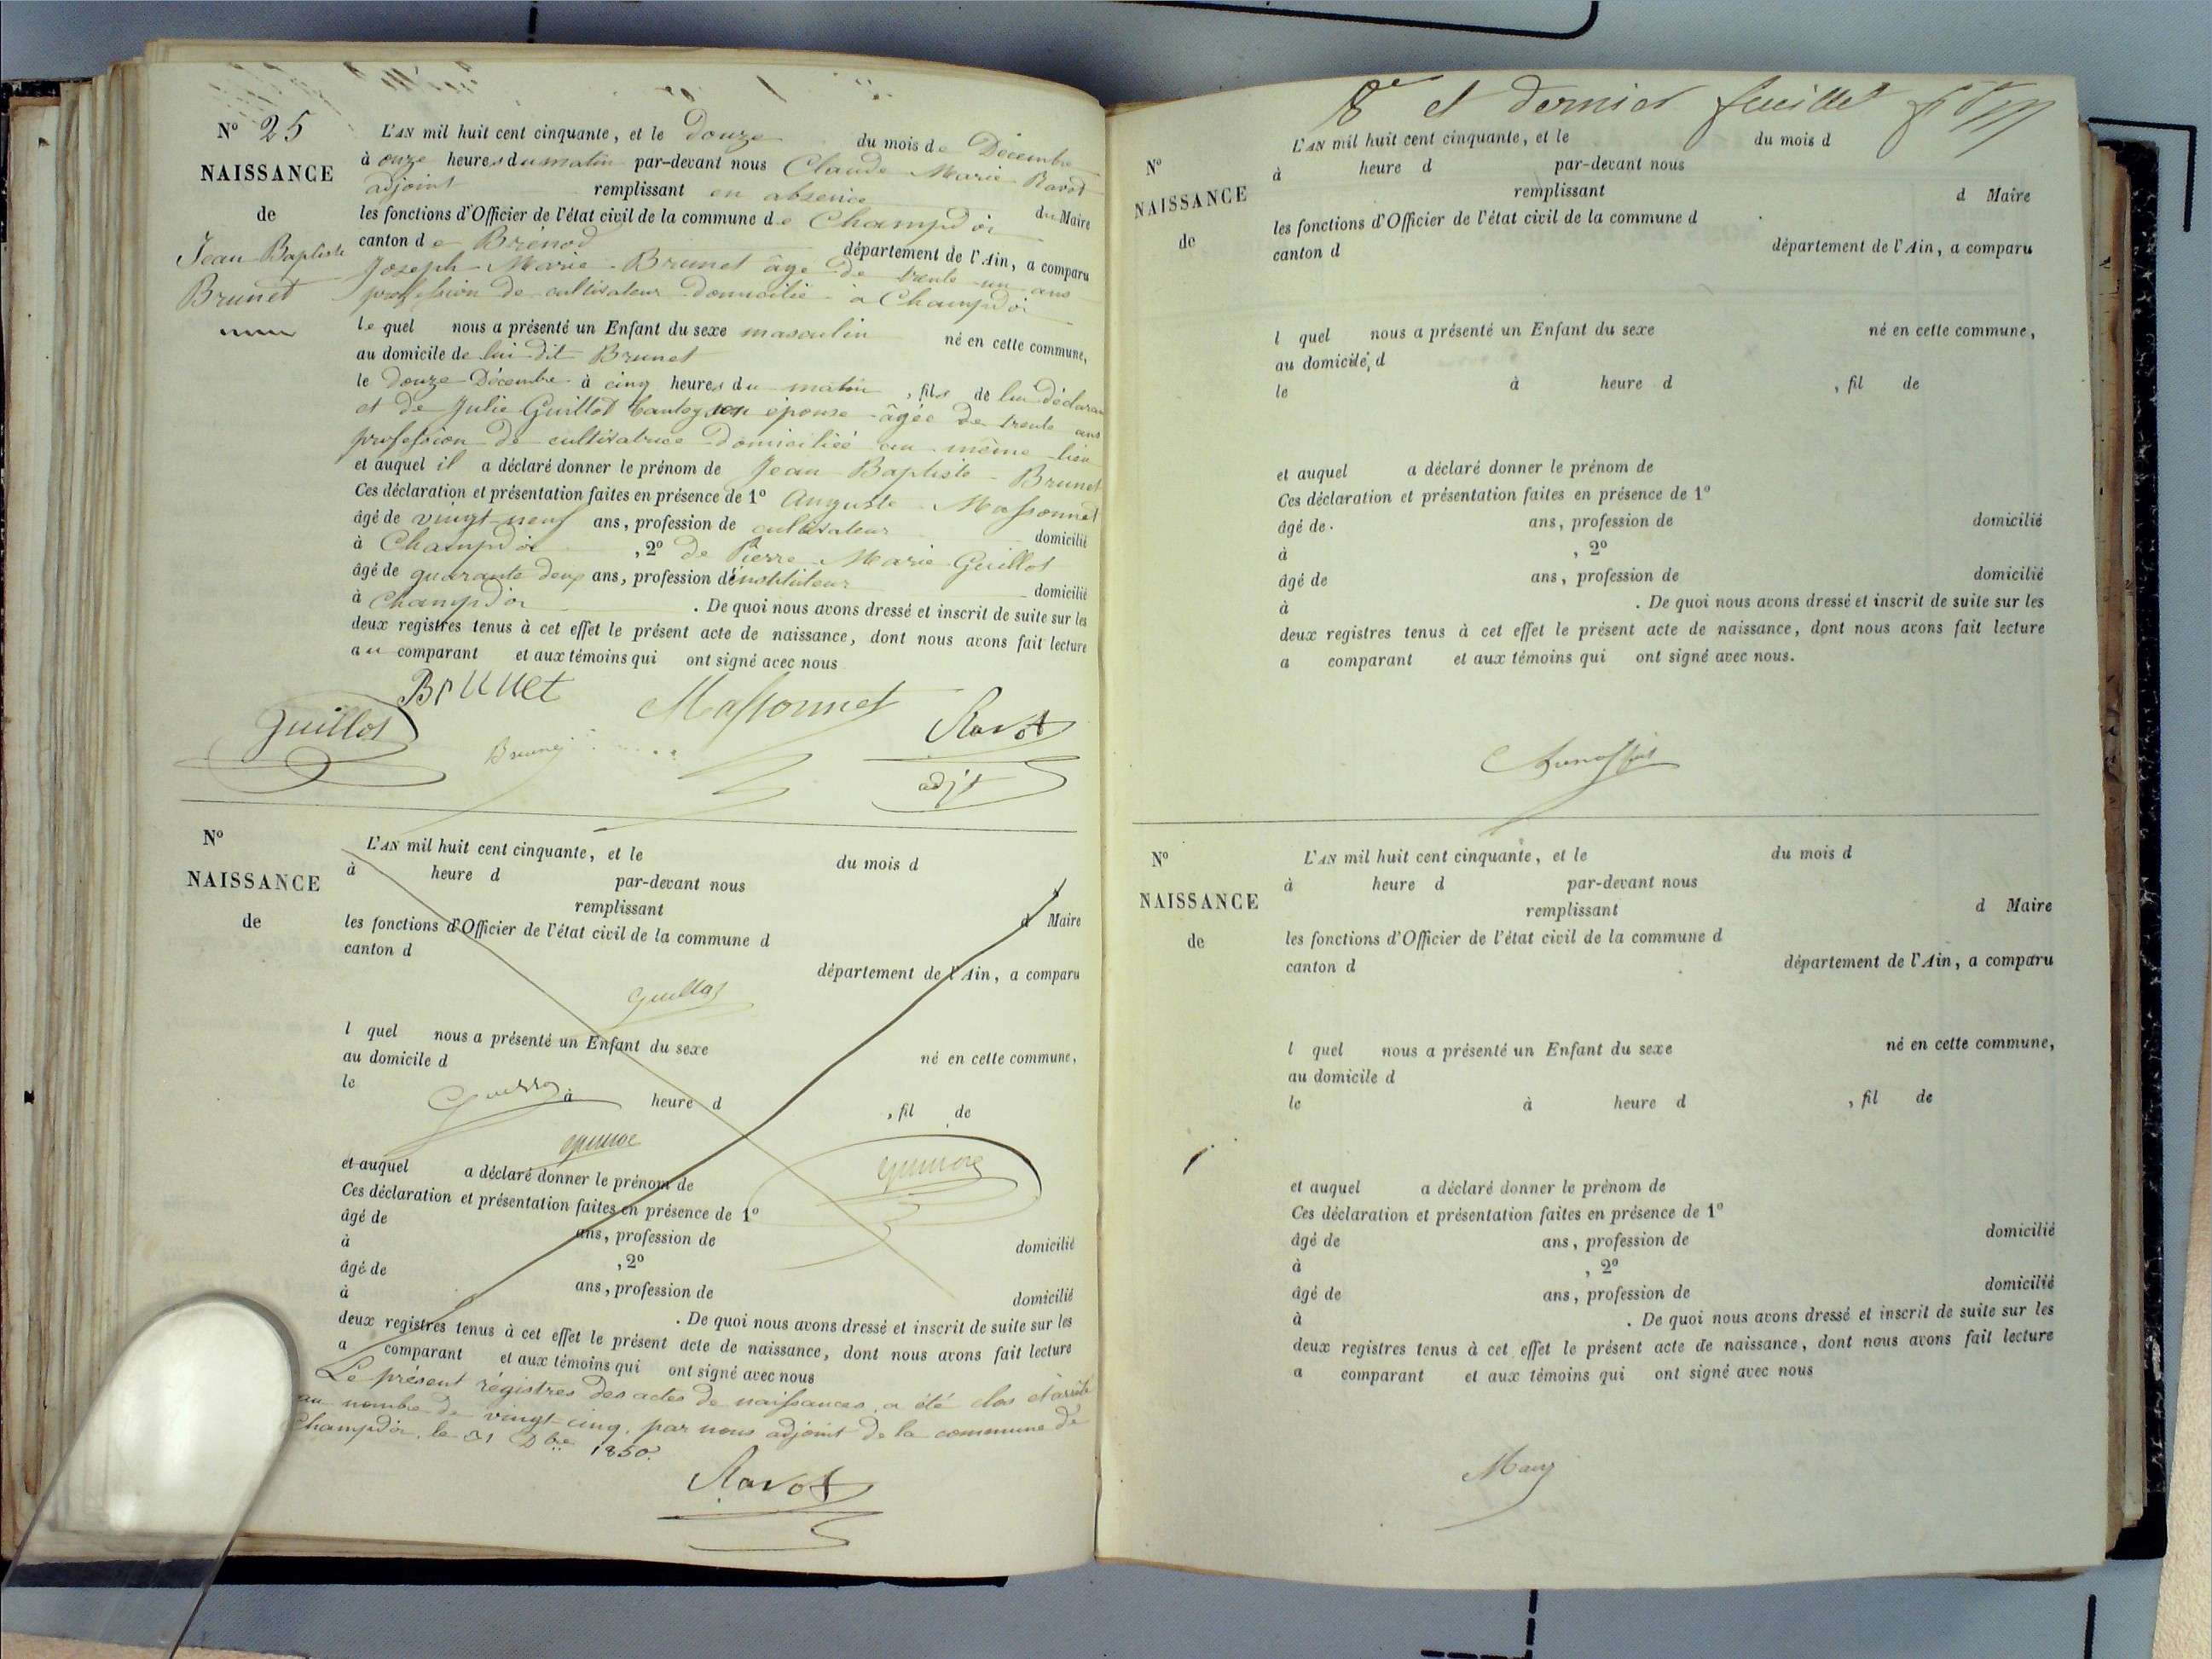 N° 25
NAISSANCE
de
Jean Baptiste
Brunet
L'AN mil huit cent cinquante, et le douze du mois de Décembre
à onze heures du matin par-devant nous Claude Marie Ravot
adjoint remplissant en absence du Maire
les fonctions d'Officier de l'état civil de la commune de Champdor
canton de Brénod département de l'Ain, a comparu
Joseph-Marie-Brunet âgé de trente un ans
profession de cultivateur domicilié à Champdor
lequel nous a présenté un Enfant du sexe masculin né en cette commune,
au domicile de lui dit Brunet
le douze Décembre à cinq heures du matin, fils de lui déclarant
et de Julie Guillot son épouse âgée de trente ans
profession de cultivatrice domiciliée au même lieu
et auquel il a déclaré donner le prénom de Jean Baptiste - Brunet
Ces déclaration et présentation faites en présence de 1° Auguste Massonnet
âgé de vingt-neuf ans, profession de cultivateur domicilié
à Champdor, 2° de Pierre Marie Guillot
âgé de quarante deux ans, profession d'instituteur domicilié
à Champdor. De quoi nous avons dressé et inscrit de suite sur les
deux registres tenus à cet effet le présent acte de naissance, dont nous avons fait lecture
au comparant et aux témoins qui ont signé avec nous
Brunet
Guillot Massonnet Ravot
adjt
N°
NAISSANCE
de
L'AN mil huit cent cinquante, et le du mois d
à heure d par-devant nous
remplissant d Maire
les fonctions d'Officier de l'état civil de la commune d
canton d département de l'Ain, a comparu
Guillot
l quel nous a présenté un Enfant du sexe né en cette commune,
au domicile d
le à heure d , fil de
et auquel a déclaré donner le prénom de
Ces déclaration et présentation faites en présence de 1°
âgé de ans, profession de domicilié
à , 2°
âgé de ans, profession de domicilié
à . De quoi nous avons dressé et inscrit de suite sur les
deux registres tenus à cet effet le présent acte de naissance, dont nous avons fait lecture
a comparant et aux témoins qui ont signé avec nous
Le présent régistres des actes de naissances, a été clos et arrêté
au nombre de vingt-cinq, par nous adjoint de la commune de
Champdor, le 31 Dbre 1850.
Ravot
8e et dernier feuillet
N°
NAISSANCE
de
L'AN mil huit cent cinquante, et le du mois d
à heure d par-devant nous
remplissant d Maire
les fonctions d'Officier de l'état civil de la commune d
canton d département de l'Ain, a comparu
l quel nous a présenté un Enfant du sexe né en cette commune,
au domicile d
le à heure d , fil de
et auquel a déclaré donner le prénom de
Ces déclaration et présentation faites en présence de 1°
âgé de ans, profession de domicilié
à , 2°
âgé de ans, profession de domicilié
à . De quoi nous avons dressé et inscrit de suite sur les
deux registres tenus à cet effet le présent acte de naissance, dont nous avons fait lecture
a comparant et aux témoins qui ont signé avec nous.
N°
NAISSANCE
de
L'AN mil huit cent cinquante, et le du mois d
à heure d par-devant nous
remplissant d Maire
les fonctions d'Officier de l'état civil de la commune d
canton d département de l'Ain, a comparu
l quel nous a présenté un Enfant du sexe né en cette commune,
au domicile d
le à heure d , fil de
et auquel a déclaré donner le prénom de
Ces déclaration et présentation faites en présence de 1°
âgé de ans, profession de domicilié
à , 2°
âgé de ans, profession de domicilié
à . De quoi nous avons dressé et inscrit de suite sur les
deux registres tenus à cet effet le présent acte de naissance, dont nous avons fait lecture
a comparant et aux témoins qui ont signé avec nous